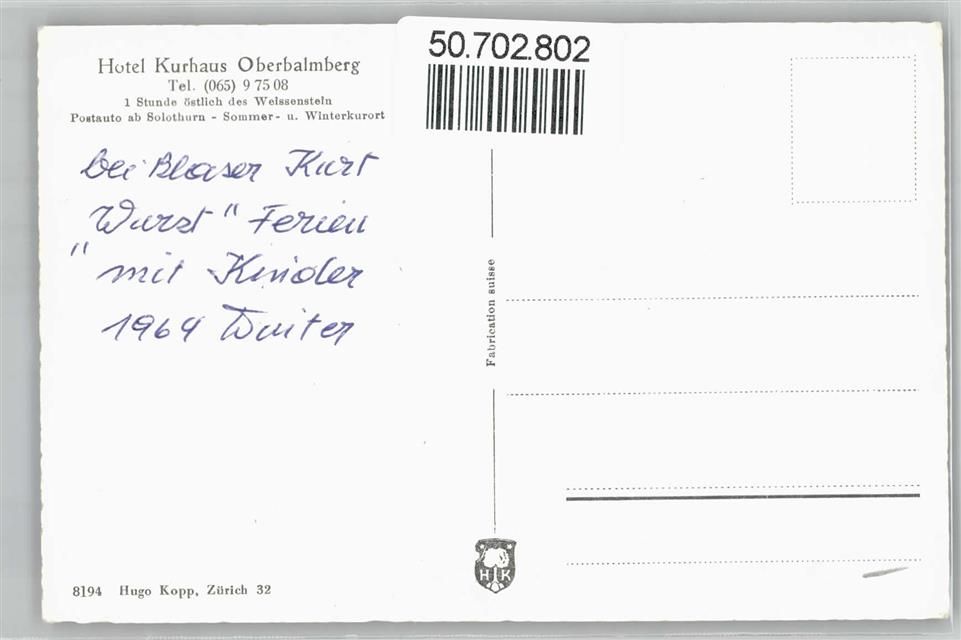 Hotel Kurhaus Oberbalmberg
Tel. (065) 9 75 08
1 Stunde östlich des Weissenstein
Postauto ab Solothurn - Sommer- u. Winterkurort
50.702.802
bei Blaser Kurt
Wurst " Ferien
" mit Kinder
1964 Winter
Fabrication suisse
H K
8194 Hugo Kopp, Zürich 32